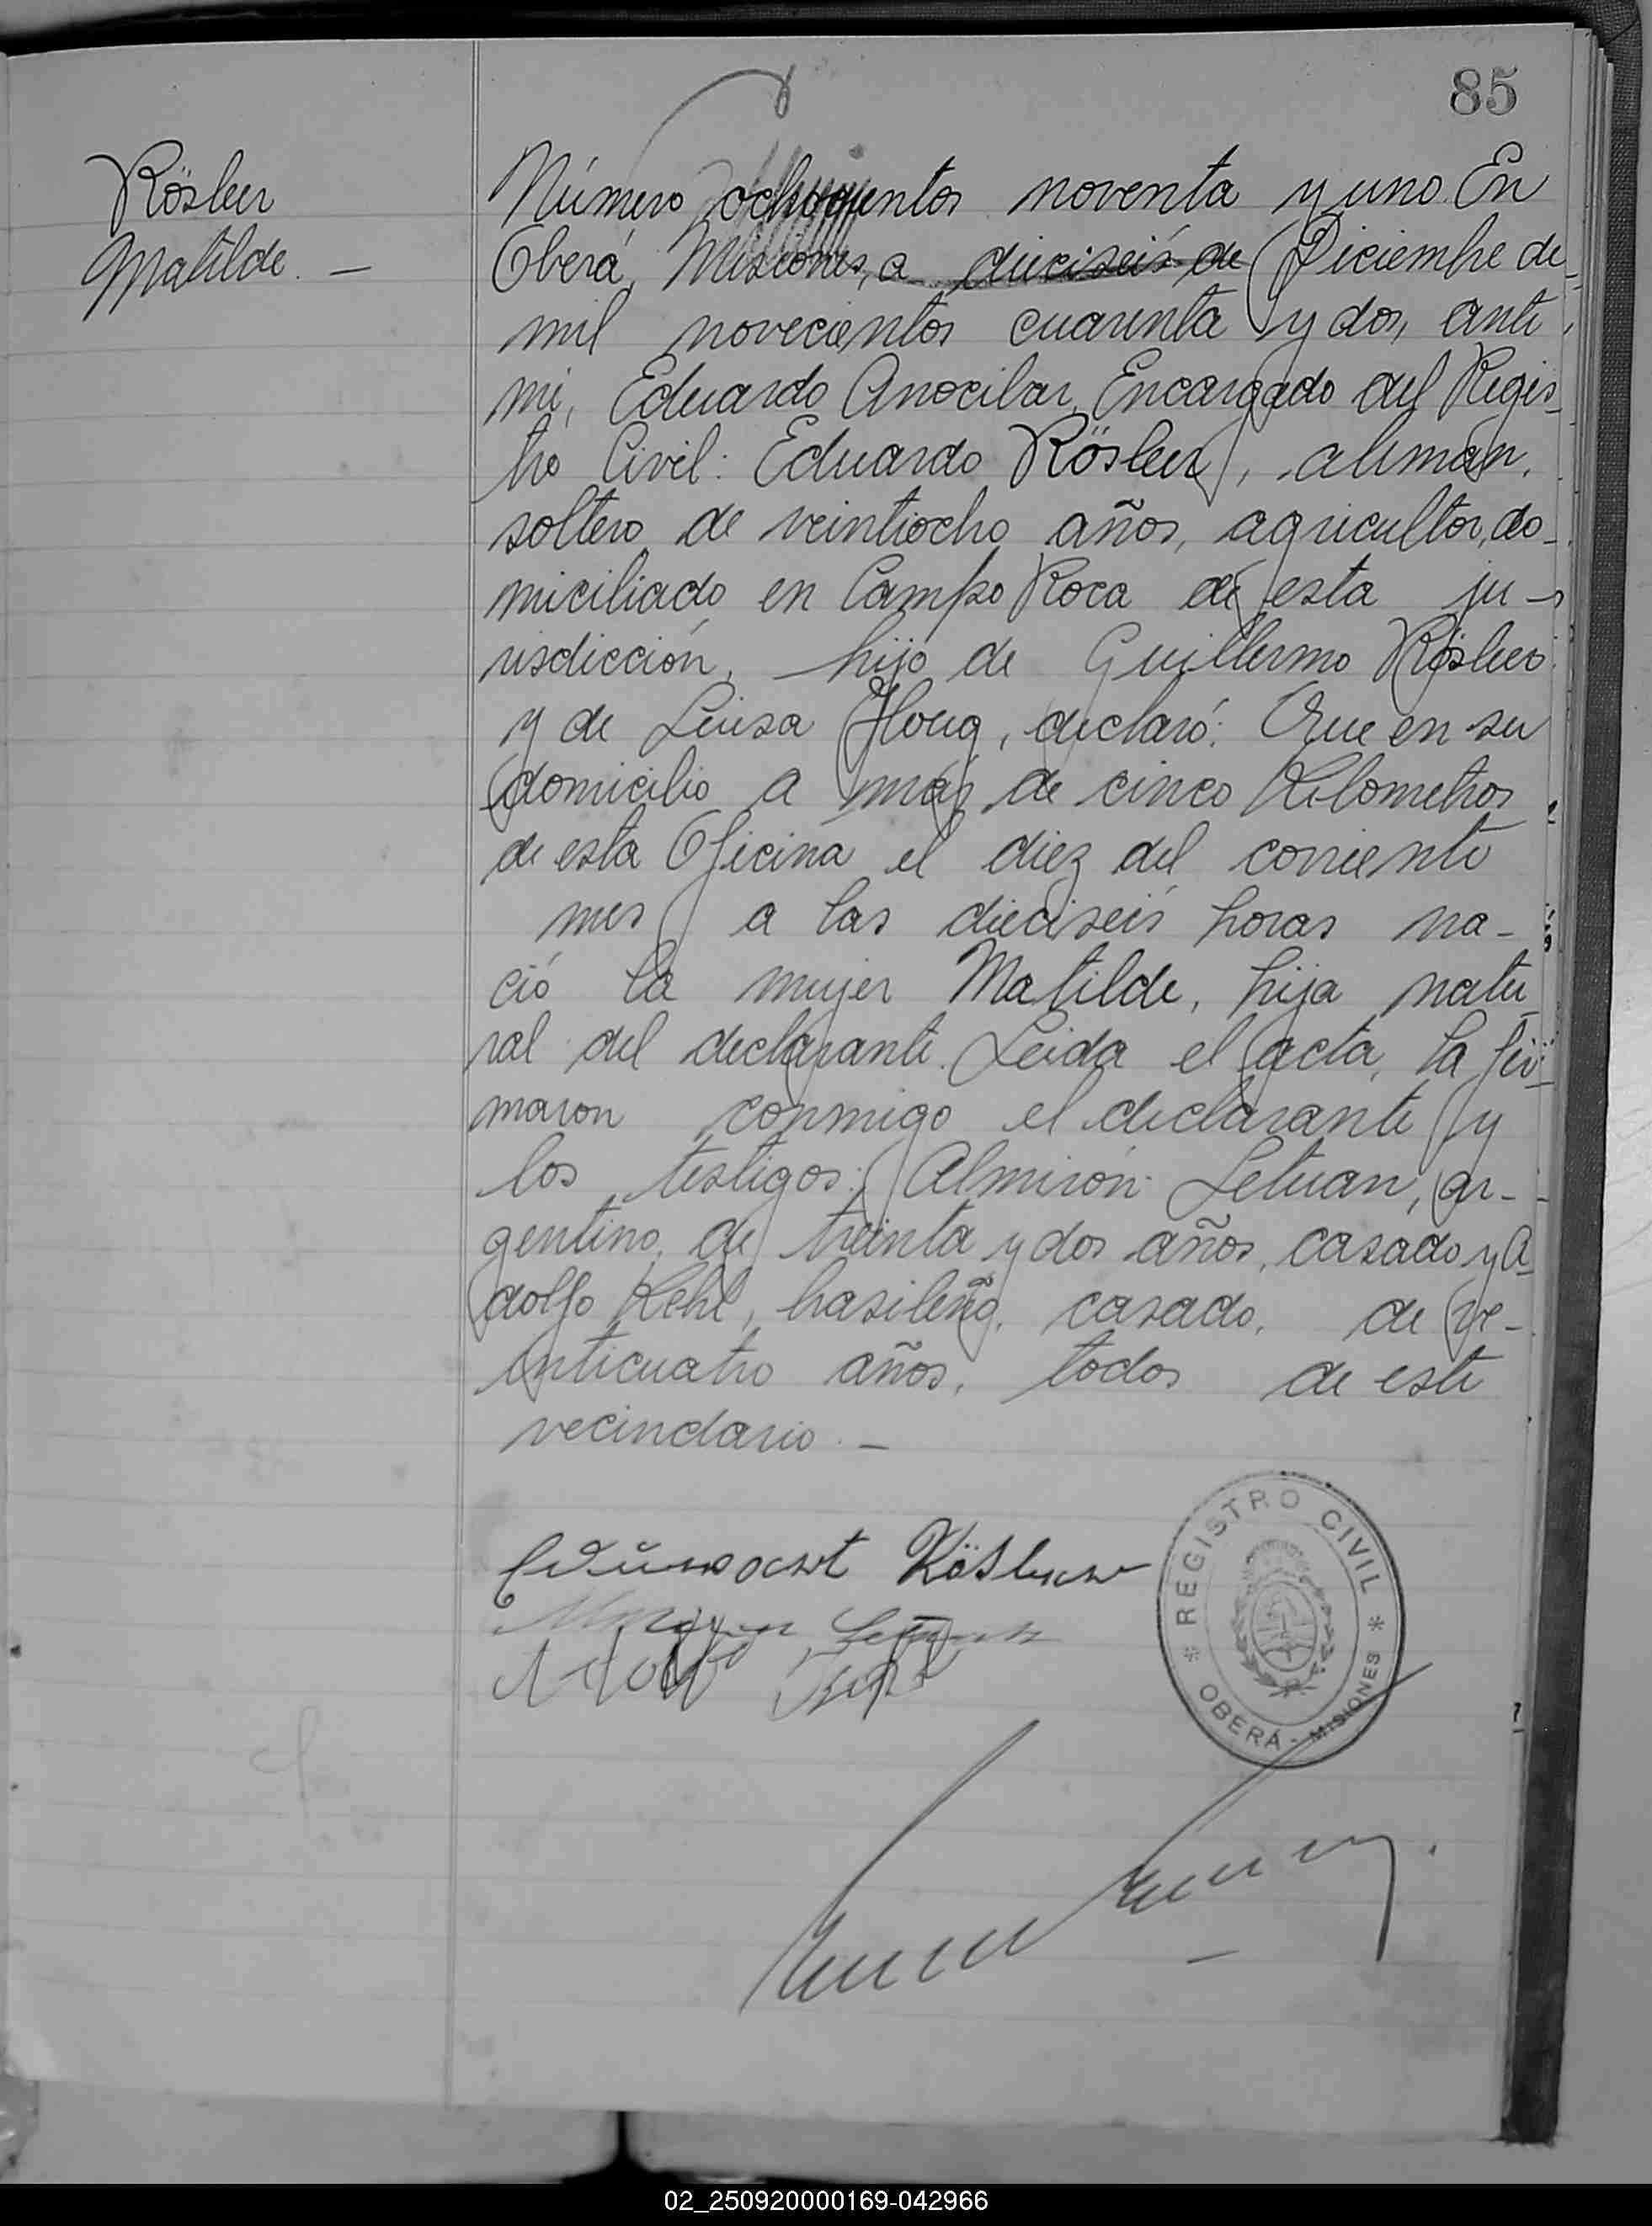 85
Rösler
Matilde. —
Número ochocientos noventa y uno. En
Oberá, Misiones, a dieciseis de Diciembre de
mil novecientos cuarenta y dos, ante
mi, Eduardo Anocibar, Encargado del Regis-
tro Civil: Eduardo Rösler, alemán,
soltero de veintiocho años, agricultor, do-
miciliado en Campo Roca de esta ju-
risdicción, hijo de Guillermo Rösler
y de Luisa Houg, declaró: Que en su
domicilio a más de cinco Kilometros
de esta Oficina el diez del corriente
mes a las dieciseis horas na-
ció la mujer Matilde, hija natu-
ral del declarante. Leida el acta, la fir-
maron conmigo el declarante y
los testigos: Almirón Letuan, ar-
gentino, de treinta y dos años, casado y A-
dolfo Kehl, brasileño, casado, de ve-
inticuatro años, todos de este
vecindario. —
Eduard Rösler
Adolfo Kehl
REGISTRO CIVIL
OBERÁ - MISIONES
02_250920000169-042966